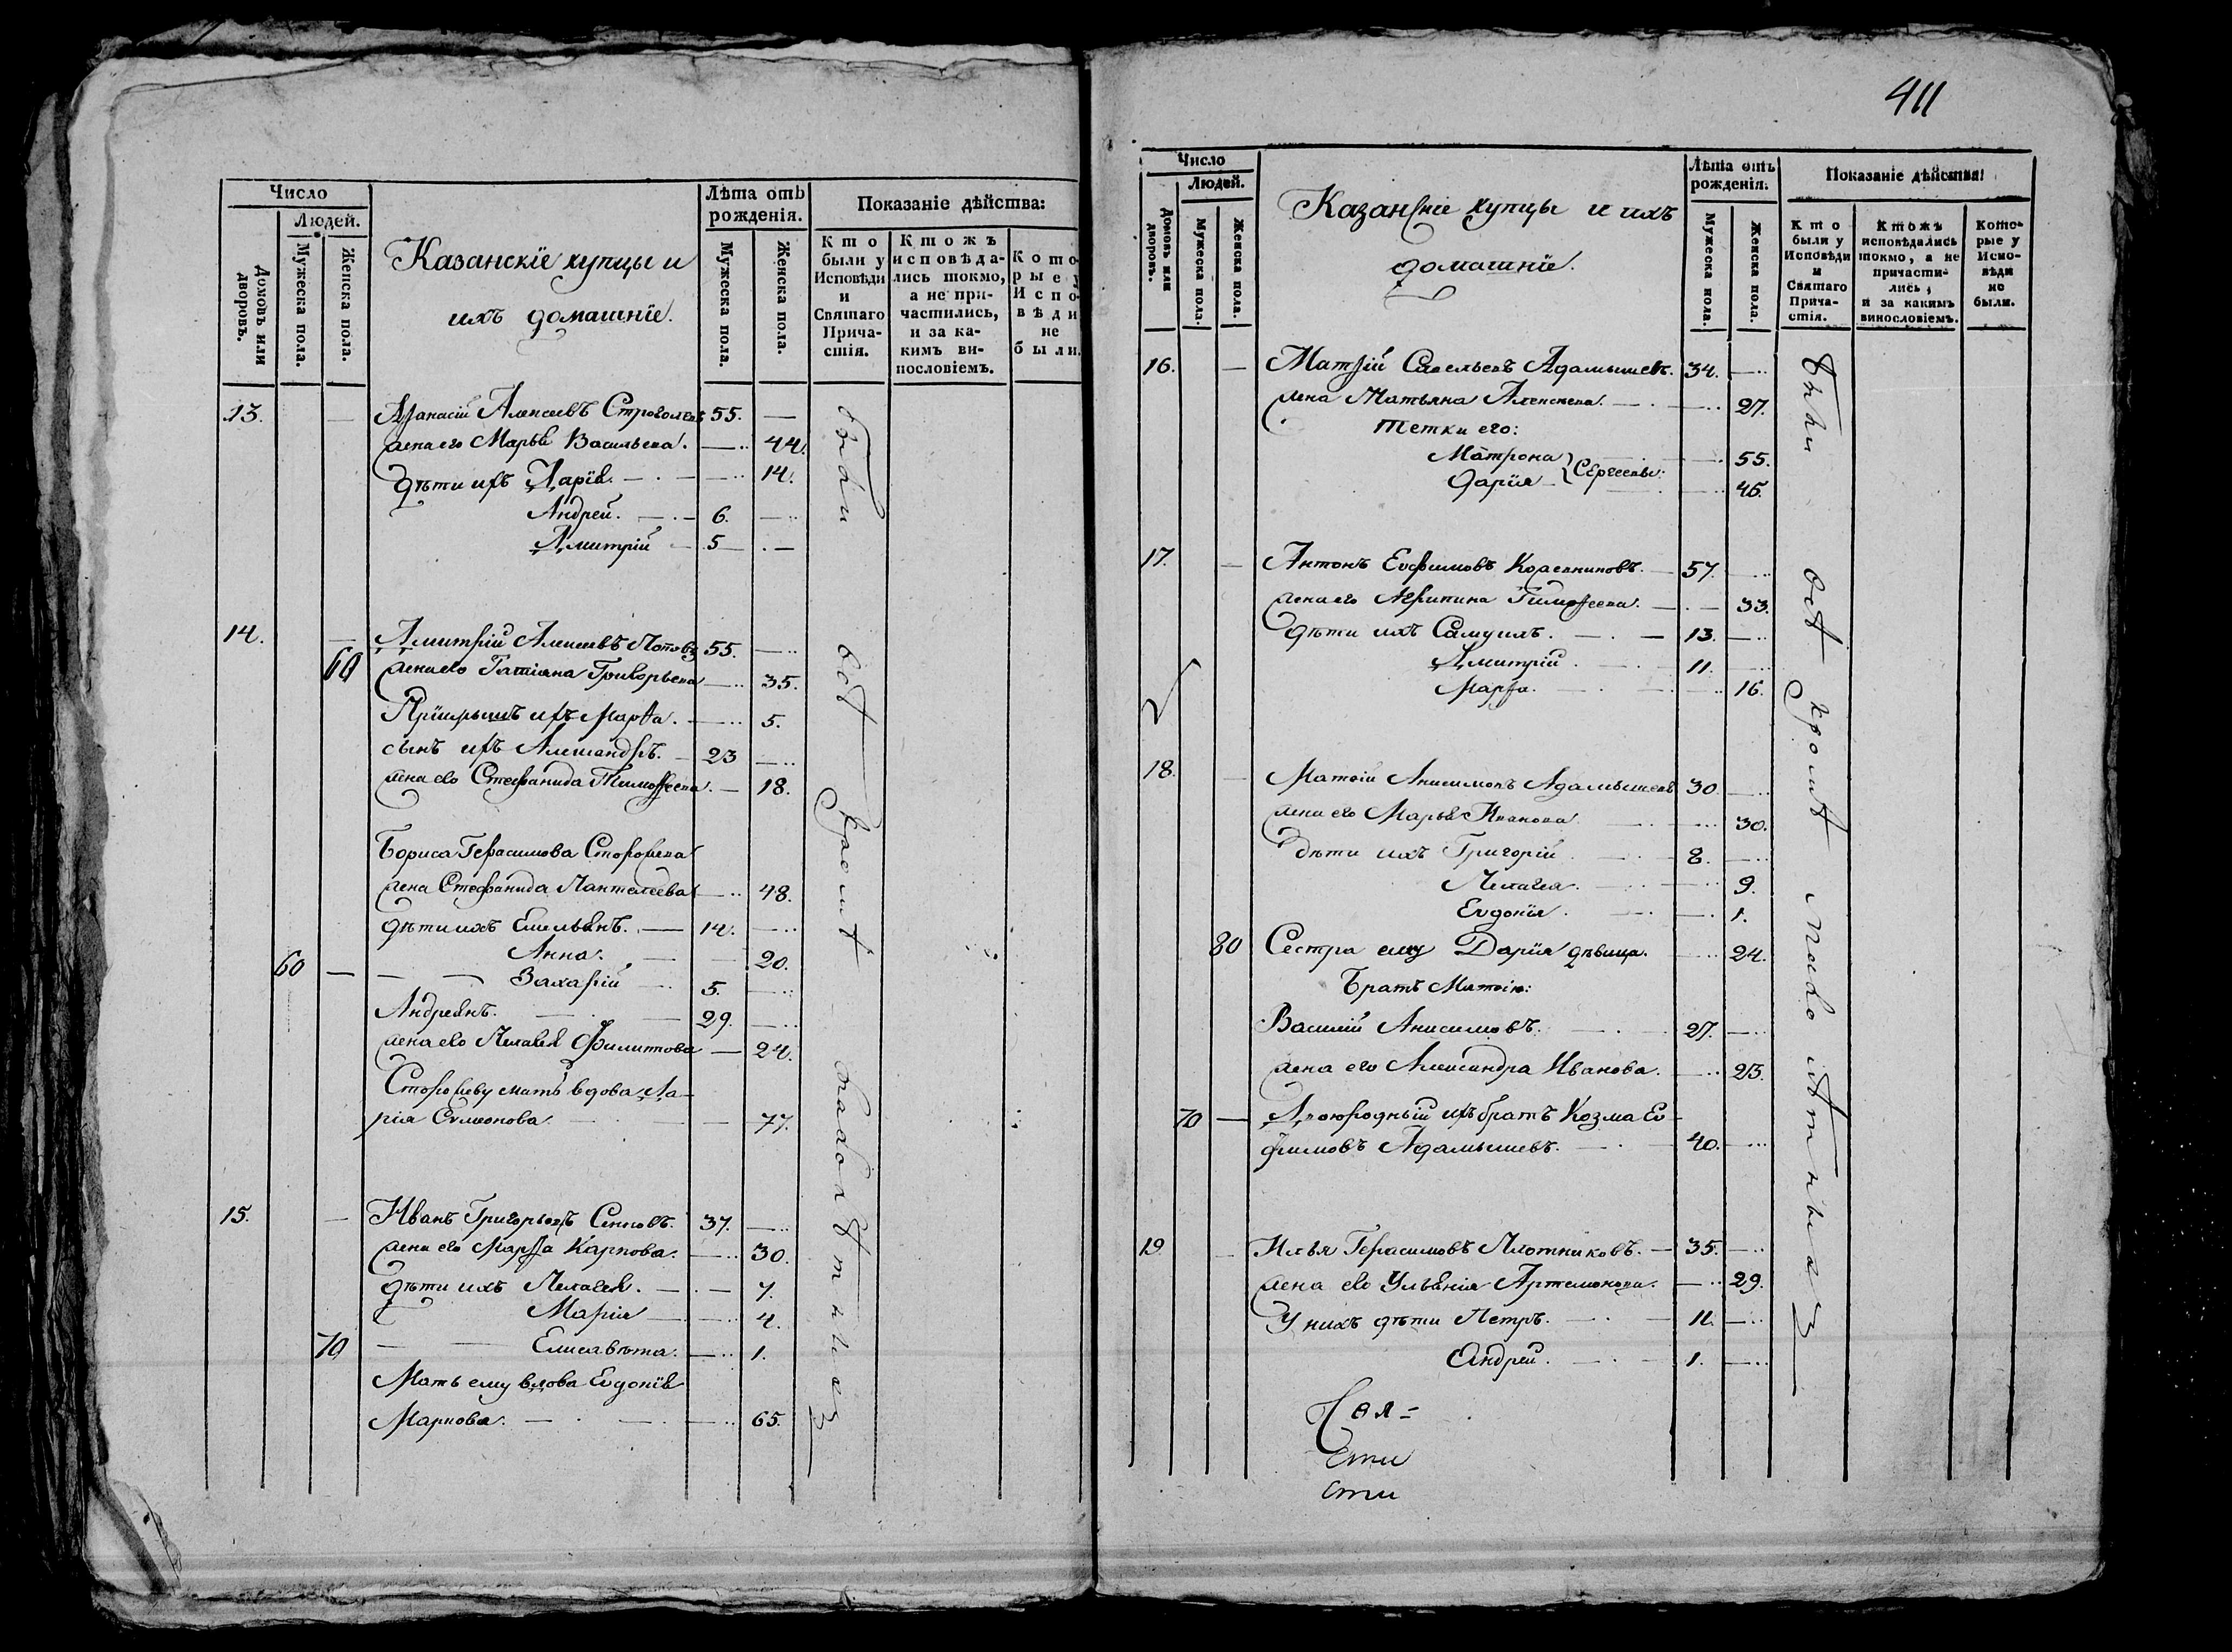 Число
Людей.
Домовъ или дворовъ.
Мужеска пола.
Женска пола.
Казанскіе купцы и
ихъ домашніе.
Лѣта отъ
рожденія.
Мужеска пола.
Женска пола.
Показаніе дѣйства:
Кто
были у
Исповѣди
и
Святаго
Прича-
стія.
Ктожъ
исповѣда-
лись токмо,
а не при-
частились,
и за ка-
кимъ ви-
нословіемъ.
Кото-
рые у
Испо-
вѣди
не
были.
13. — Аѳанасій Алексеевъ 55. —
жена его Марья Васильева. — 44.
дѣти ихъ Дарія. — 14.
Андрей. — 6. —
Дмитрій — 5 —
14. — Дмитрій Алексеевъ 55. —
60 жена его Татіана Григорьева — 35.
Пріемышъ ихъ Марѳа. — 5.
сынъ ихъ Александръ. — 23 —
жена его Стефанида Тимоѳеева. — 18.
Бориса Герасимова
жена Стефанида Пантелеева — 48.
дѣти ихъ Емельянъ. — 14. —
Анна. — 20.
60 — Захарій — 5. —
Андреянъ. — 29. —
жена его Пелагея Филиппова — 24.
мать вдова Да-
рія Симеонова. — 77.
15. — Иванъ Григорьевъ 37. —
жена его Марѳа Карпова. — 30.
дѣти ихъ Пелагея. — 7.
Марія — 4.
70 — Елисавѣта. — 1.
Мать ему вдова Евдокія
Маркова. — 65.
были всѣ кромѣ малолѣтныхъ
411
Число
Людей.
Домовъ или дворовъ.
Мужеска пола.
Женска пола.
Казанскіе купцы и ихъ
домашніе.
Лѣта отъ
рожденія.
Мужеска пола.
Женска пола.
Показаніе дѣйства:
Кто
были у
Исповѣди
и
Святаго
Прича-
стія.
Ктожъ
исповѣдались
токмо, а не
причасти-
лись,
и за какимъ
винословіемъ.
Кото-
рые у
Испо-
вѣди
не
были.
16. — Матѳій Савельевъ Адамышевъ. 34. —
жена Татьяна Алексеева. — 27.
Тетки его:
Матрона — 55.
Дарія Сергеевы: — 45.
17. — Антонъ Евфимовъ 57. —
жена его Агрипина Тимоѳеева. — 33.
дѣти ихъ Самуилъ. — 13. —
Дмитрій. — 11. —
Марѳа. — 16.
18. — Матѳій Анисимовъ Адамышевъ 30. —
жена его Марья Иванова — 30.
дѣти ихъ Григорій. — 8. —
Пелагея. — 9.
Евдокія. — 1.
80 Сестра ему Дарія дѣвица. — 24.
Братъ Матѳію:
Василій Анисимовъ. — 27. —
жена его Александра Иванова. — 23.
70 — Двоюродный ихъ братъ Козма Ев-
фимовъ Адамышевъ. — 40. —
19. — Илья Герасимовъ Плотниковъ. — 35. —
жена его Ульянія Артемонова. — 29.
У нихъ дѣти Петръ. — 11. —
Андрей. — 1. —
были всѣ кромѣ малолѣтныхъ